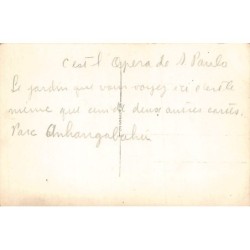 c'est l'Opera de S. Paulo
Le jardin que vous voyez ici c'est le
même que deux autres cartes.
Parc Anhangabahú